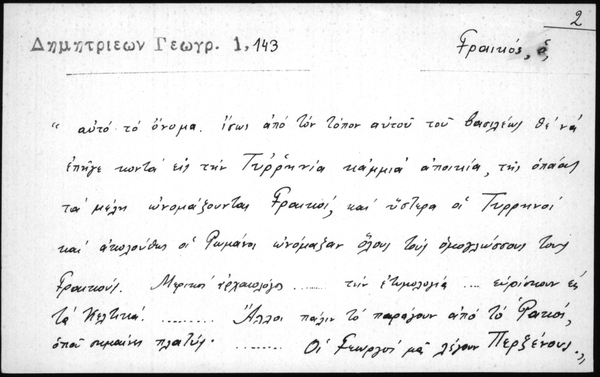 2
Δημητριεων Γεωγρ. 1, 143
Γραικός, ὁ,
" αὐτό τό ὄνομα. ἴσως ἀπό τόν τόπον αὐτοῦ τοῦ βασιλέως θέ νά
ἐπῆγε κοντά εἰς τήν Τυῤῥηνία κάμμιά ἀποικία, τῆς ὁποίας
τά μέλη ὠνομάζουνται Γραικοί, καί ὕστερα οἱ Τυρρηνοί
καί ἀκολούθως οἱ Ρωμάνοι ὠνόμαζαν ὅλους τούς ὁμογλώσσους τους
Γραικούς. Μερικοί ἀρχαιολόγοι ..... τήν ἐτυμολογιά ... εὑρίσκουν εἰς
τά Κελτικά. ......... Ἄλλοι πάλιν τό παράγουν ἀπό τό Ρακοί,
ὁποῦ σημαίνει πλατύς. ........ Οἱ Γεωργοί μᾶ λέγουν Περζένους. "